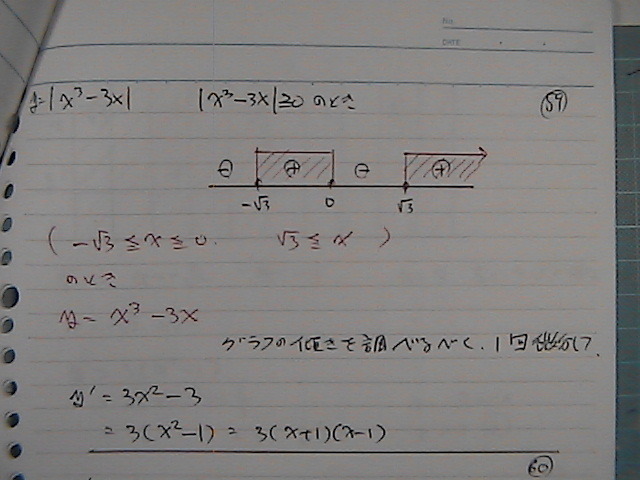 No.
DATE
y=|x³-3x| |x³-3x|≧0 のとき 59
⊖ ⊕ ⊖ ⊕
-√3 0 √3
( -√3 ≦ x ≦ 0. √3 ≦ x )
のとき
y = x³ - 3x
グラフの傾きを調べるべく、1回微分して、
y' = 3x² - 3
= 3(x²-1) = 3(x+1)(x-1)
60